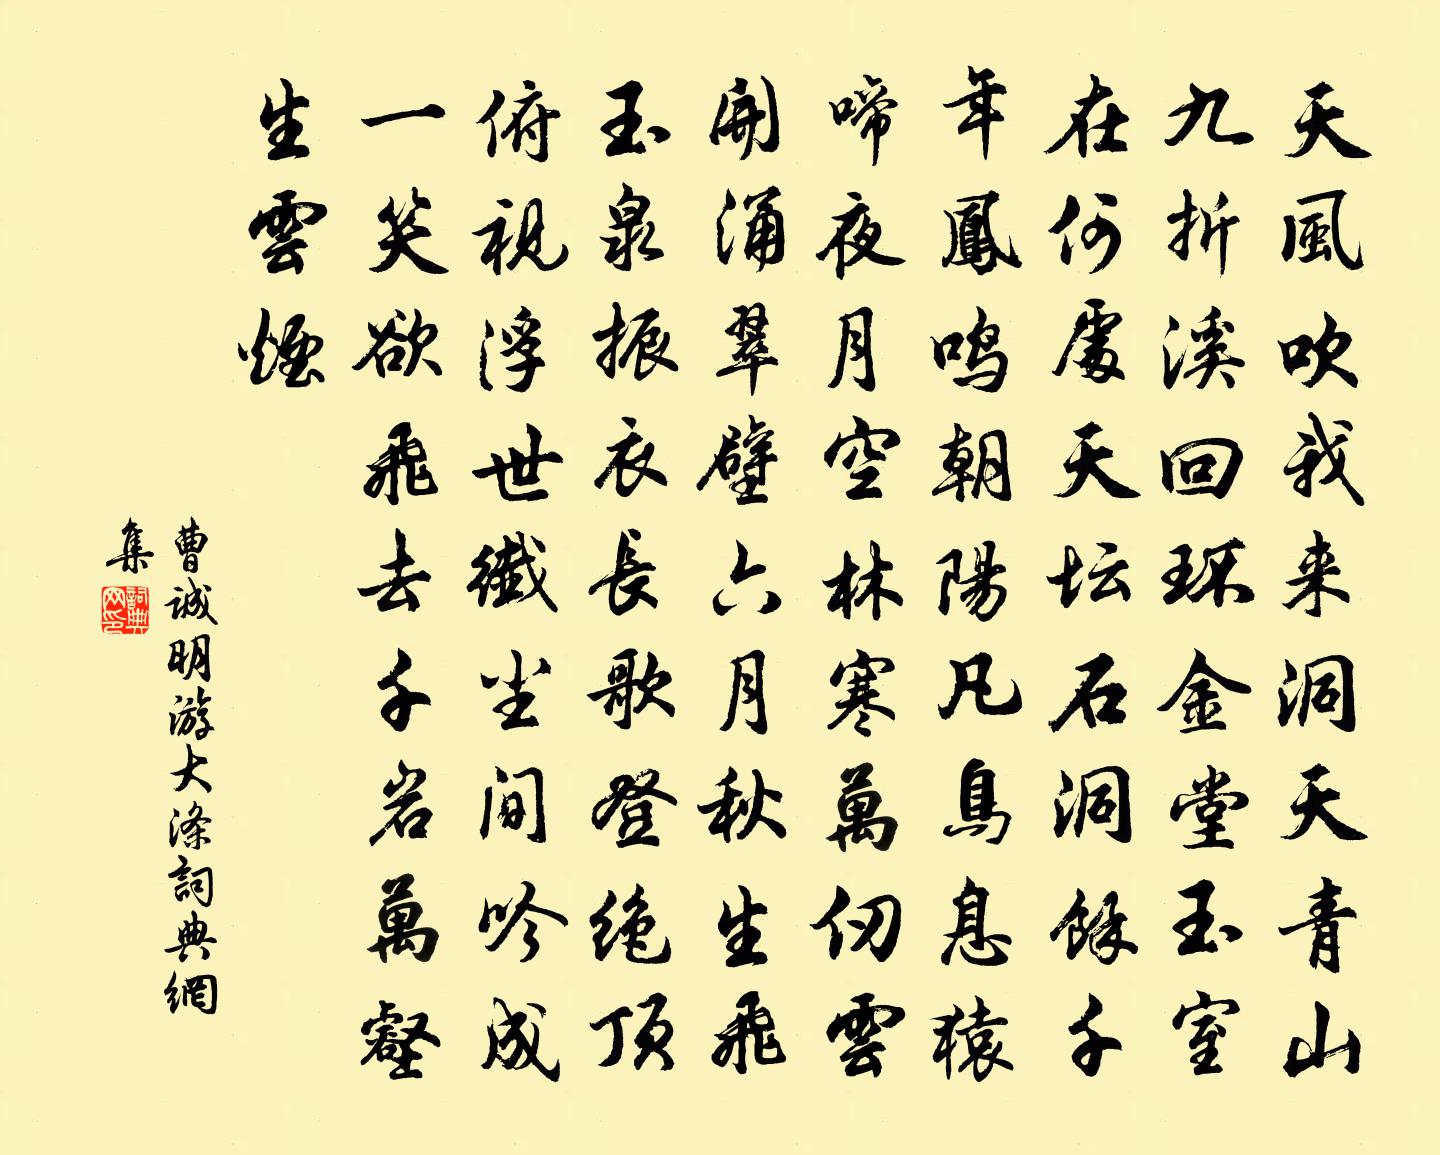 天風吹我来洞天青山
九折溪回环金堂玉室
在何處天坛石洞餘千
年鳳鸣朝陽凡鳥息猿
啼夜月空林寒萬仞雲
開涌翠壁六月秋生飛
玉泉振衣長歌登绝頂
俯視浮世纖尘间吟成
一笑欲飛去千岩萬壑
生雲煙
曹诚明游大涤詞典網
集
詞典网印